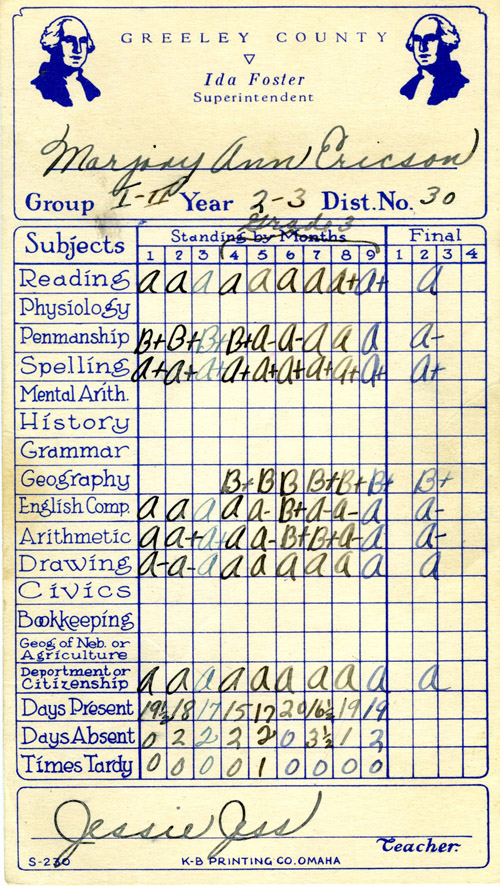 GREELEY COUNTY
Ida Foster
Superintendent
Marjory Ann Ericson
Group I-II Year 2-3 Dist. No. 30
Grade 3
Subjects Standing by Months Final
1 2 3 4 5 6 7 8 9 1 2 3 4
Reading a a a a a a a a+ a+ a
Physiology
Penmanship B+ B+ B+ B+ a- a- a a a a-
Spelling a+ a+ a+ a+ a+ a+ a+ a+ a+ a+
Mental Arith.
History
Grammar
Geography B+ B B B+ B+ B+ B+
English Comp. a a a a a- B+ a- a- a a-
Arithmetic a a-+ a+ a a- B+ B+ a- a a-
Drawing a- a- a a a a a a a a
Civics
Bookkeeping
Geog of Neb. or
Agriculture
Deportment or
Citizenship a a a a a a a a a a
Days Present 19½ 18 17 15 17 20 16½ 19 19
Days Absent 0 2 2 2 2 0 3½ 1 2
Times Tardy 0 0 0 0 1 0 0 0 0
Jessie Jess
Teacher
S-230 K-B PRINTING CO. OMAHA